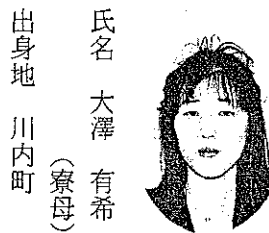 氏名　大澤　有希
（寮母）
出身地　川内町